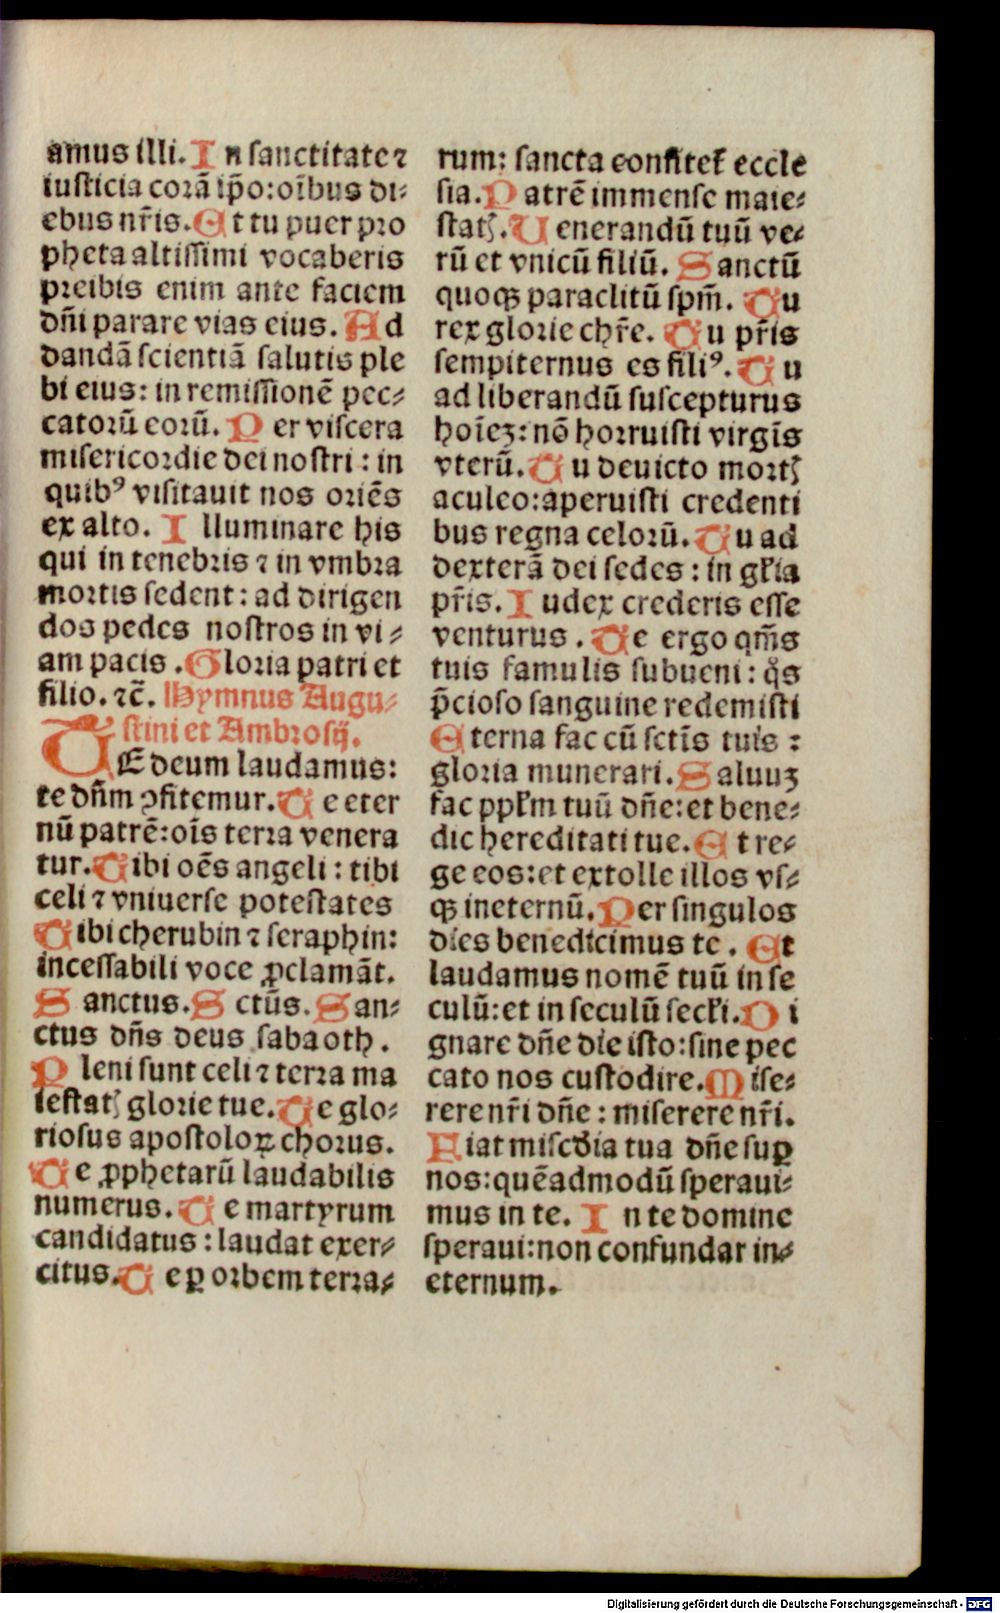 amus illi. In sanctitate ⁊
iusticia corā ip̄o: oībus di⸗
ebus nr̄is. Et tu puer pro
pheta altissimi vocaberis
preibis enim ante faciem
dn̄i parare vias eius. Ad
dandā scientiā salutis ple
bi eius: in remissionē pec⸗
catorū eorū. Per viscera
misericordie dei nostri: in
quibꝰ visitauit nos oriēs
ex alto. Illuminare his
qui in tenebris ⁊ in vmbra
mortis sedent: ad dirigen
dos pedes nostros in vi⸗
am pacis. Gloria patri et
filio. ⁊c̄. Hymnus Augu⸗
stini et Ambrosij.
TE deum laudamus:
te dn̄m ꝯfitemur. Te eter
nū patrē: oīs terra venera
tur. Tibi oēs angeli: tibi
celi ⁊ vniuerse potestates
Tibi cherubin ⁊ seraphin:
incessabili voce ꝓclamāt.
Sanctus. Sctūs. San⸗
ctus dn̄s deus sabaoth.
Pleni sunt celi ⁊ terra ma
iestatꝭ glorie tue. Te glo⸗
riosus apostoloꝝ chorus.
Te ꝓphetarū laudabilis
numerus. Te martyrum
candidatus: laudat exer⸗
citus. Te ꝑ orbem terra⸗
rum: sancta confitet᷑ eccle
sia. Patrē immense maie⸗
statꝭ. Uenerandū tuū ve⸗
rū et vnicū filiū. Sanctū
quoqꝫ paraclitū spm̄. Tu
rex glorie chr̄e. Tu pr̄is
sempiternus es filiꝰ. Tu
ad liberandū suscepturus
hoīeꝫ: nō horruisti virgīs
vterū. Tu deuicto mortꝭ
aculeo: aperuisti credenti
bus regna celorū. Tu ad
dexterā dei sedes: in gl̄ia
pr̄is. Iudex crederis esse
venturus. Te ergo qm̄s
tuis famulis subueni: qͦs
p̄cioso sanguine redemisti
Eterna fac cū sctīs tuis:
gloria munerari. Saluuꝫ
fac ppl̄m tuū dn̄e: et bene⸗
dic hereditati tue. Et re⸗
ge eos: et extolle illos vs⸗
qꝫ ineternū. Per singulos
dies benedicimus te. Et
laudamus nomē tuū in se
culū: et in seculū secl̄i. Di
gnare dn̄e die isto: sine pec
cato nos custodire. Mise⸗
rere nr̄i dn̄e: miserere nr̄i.
Fiat misc̄dia tua dn̄e suꝑ
nos: quēadmodū speraui⸗
mus in te. In te domine
speraui: non confundar in⸗
eternum.
Digitalisierung gefördert durch die Deutsche Forschungsgemeinschaft - DFG